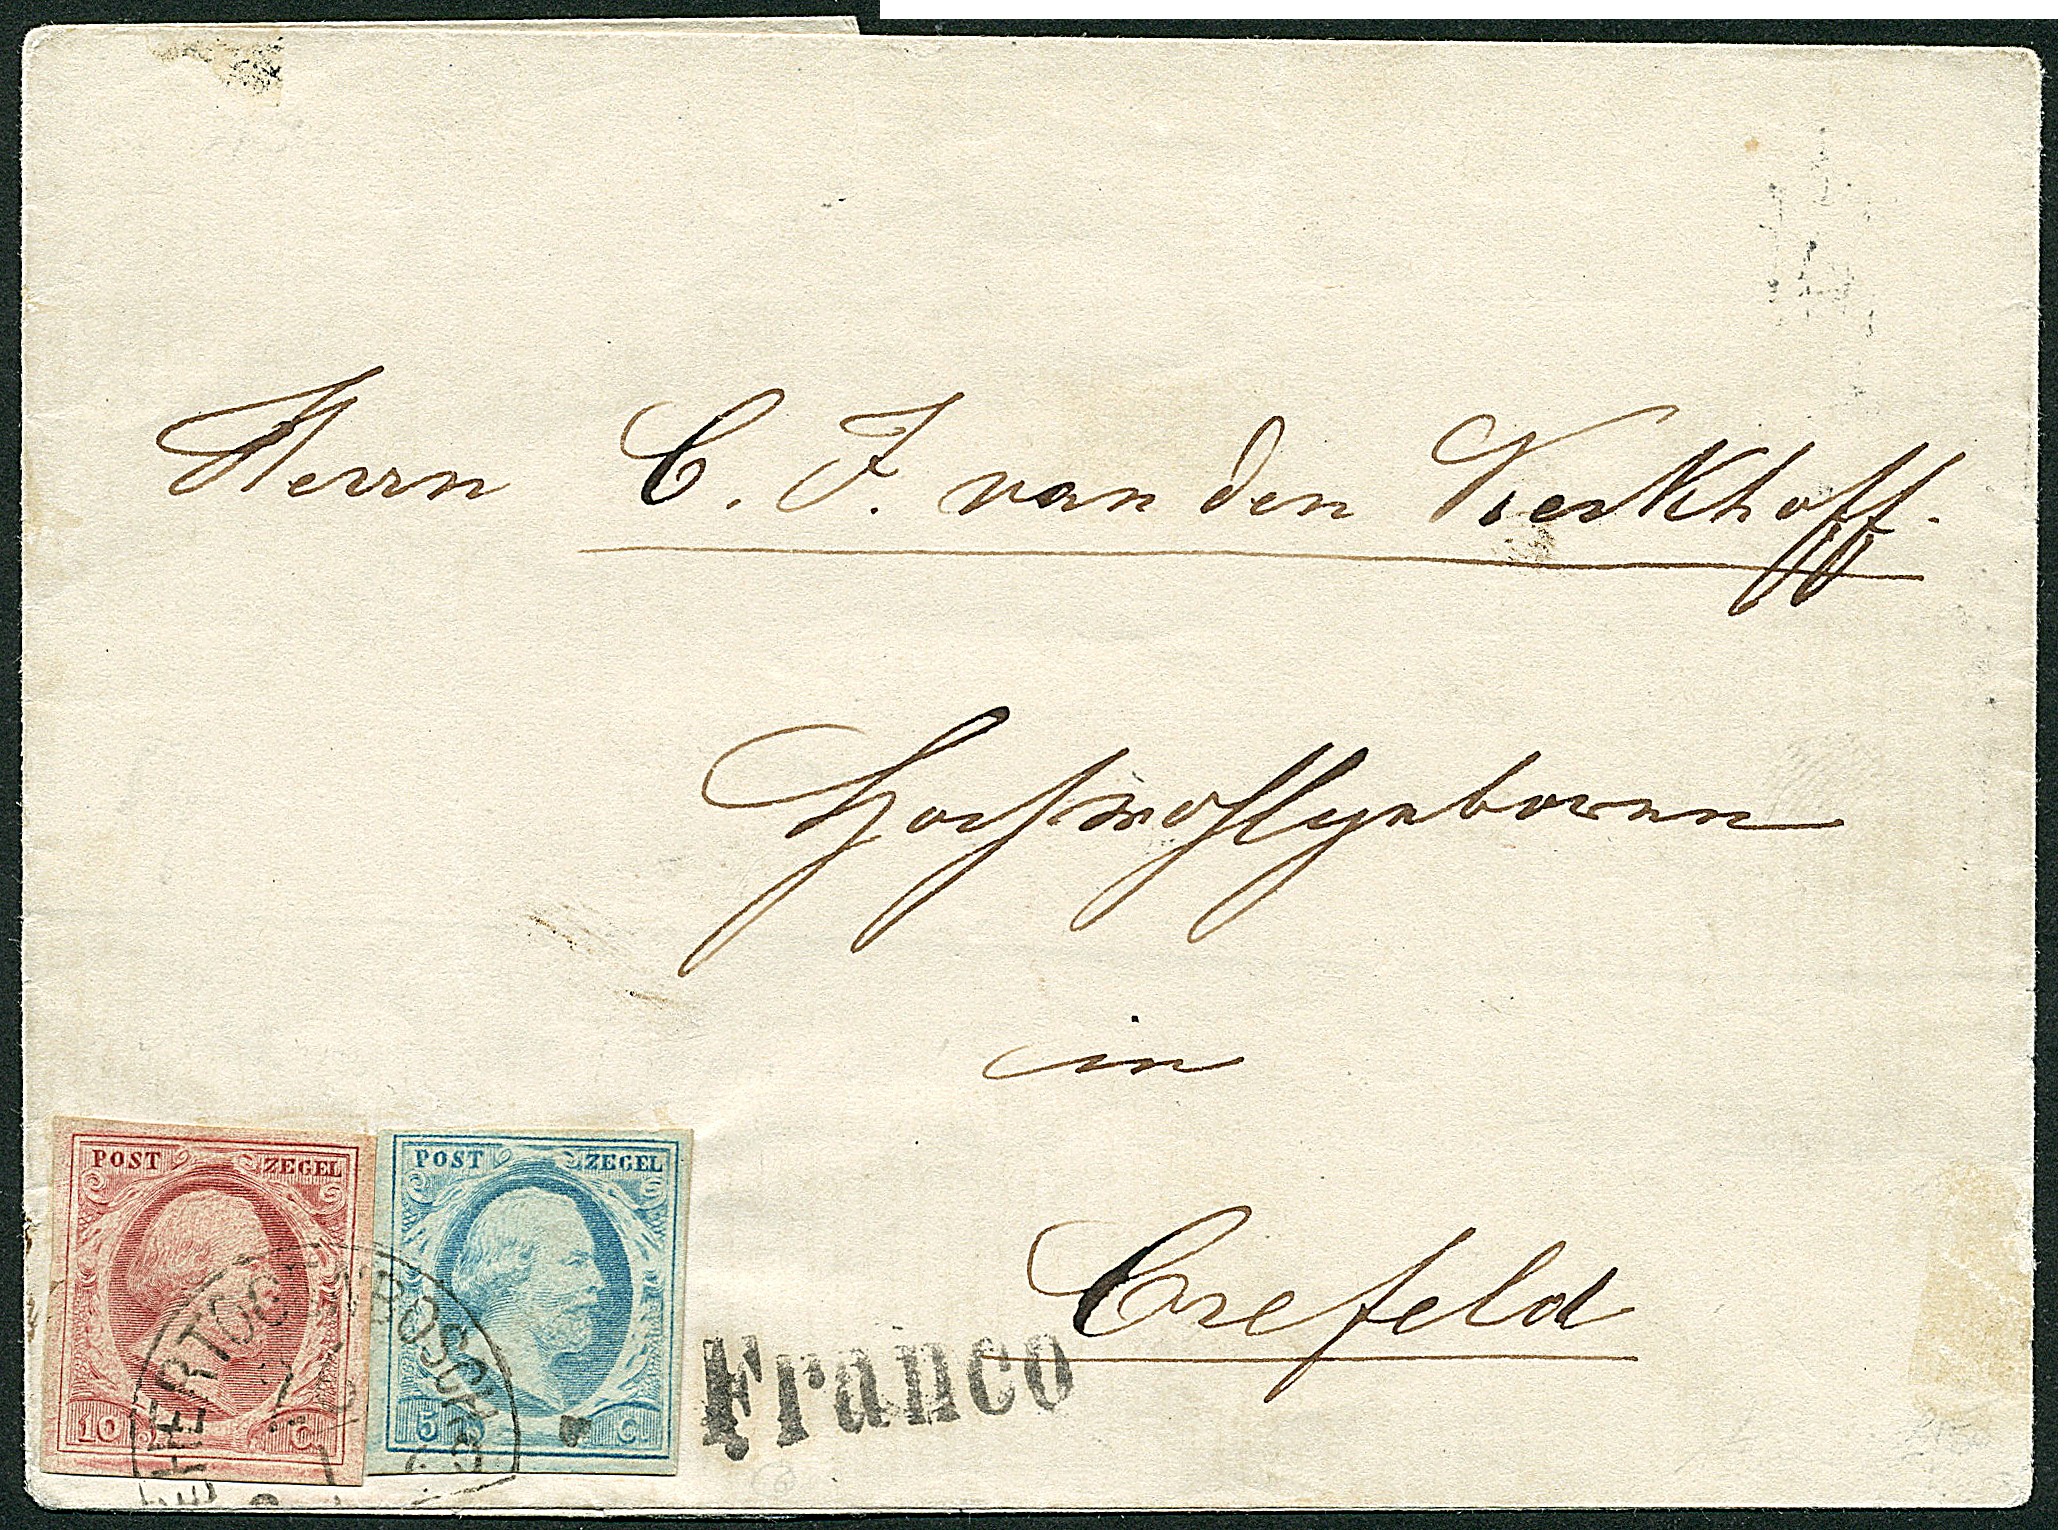 Herrn C. J. van den Kerkhoff.
Hochwohlgeboren
in
Crefeld
POST ZEGEL
10 C.
POST ZEGEL
5 C.
'S HERTOGENBOSCH
Franco